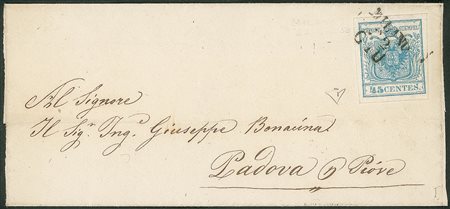 MILANO
45 CENTES
Al Signore
Il Sigr. Ingr. Giuseppe Bonaùna
Padova p Piove